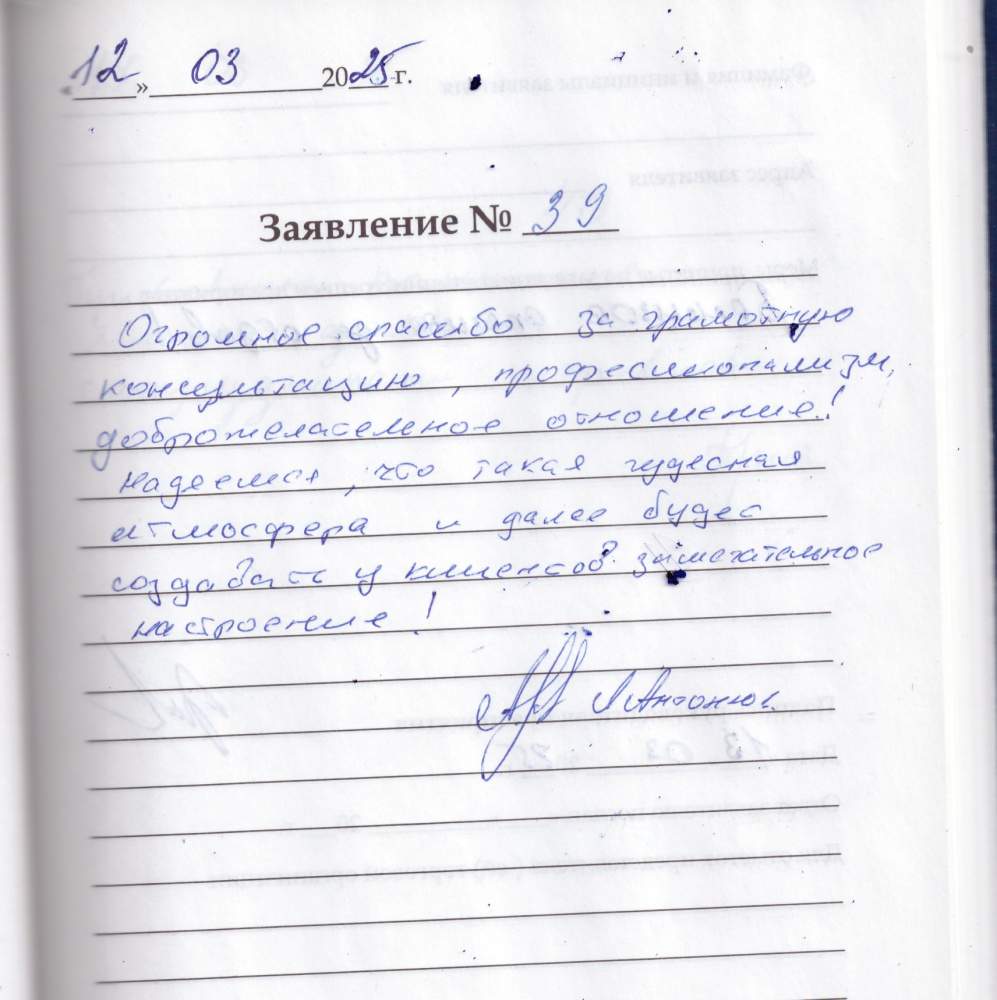 12 » 03 2025 г.
Заявление № 39
Огромное спасибо за грамотную
консультацию, профессионализм,
доброжелательное отношение!
Надеемся, что такая чудесная
атмосфера и далее будет
создавать у клиентов замечательное
настроение!
Антонюк